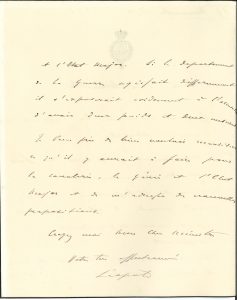 et l'Etat Major. Si le département
de la Guerre agissait différemment
il s'exposerait évidemment à
d'avoir deux poids et deux mesures
Je vous prie de bien vouloir
ce qu'il y aurait à faire pour
la cavalerie, le Génie et l'Etat
Major et de m'adresser de nouvelles
propositions.
Croyez moi mon cher Ministre
Votre très affectionné
Léopold